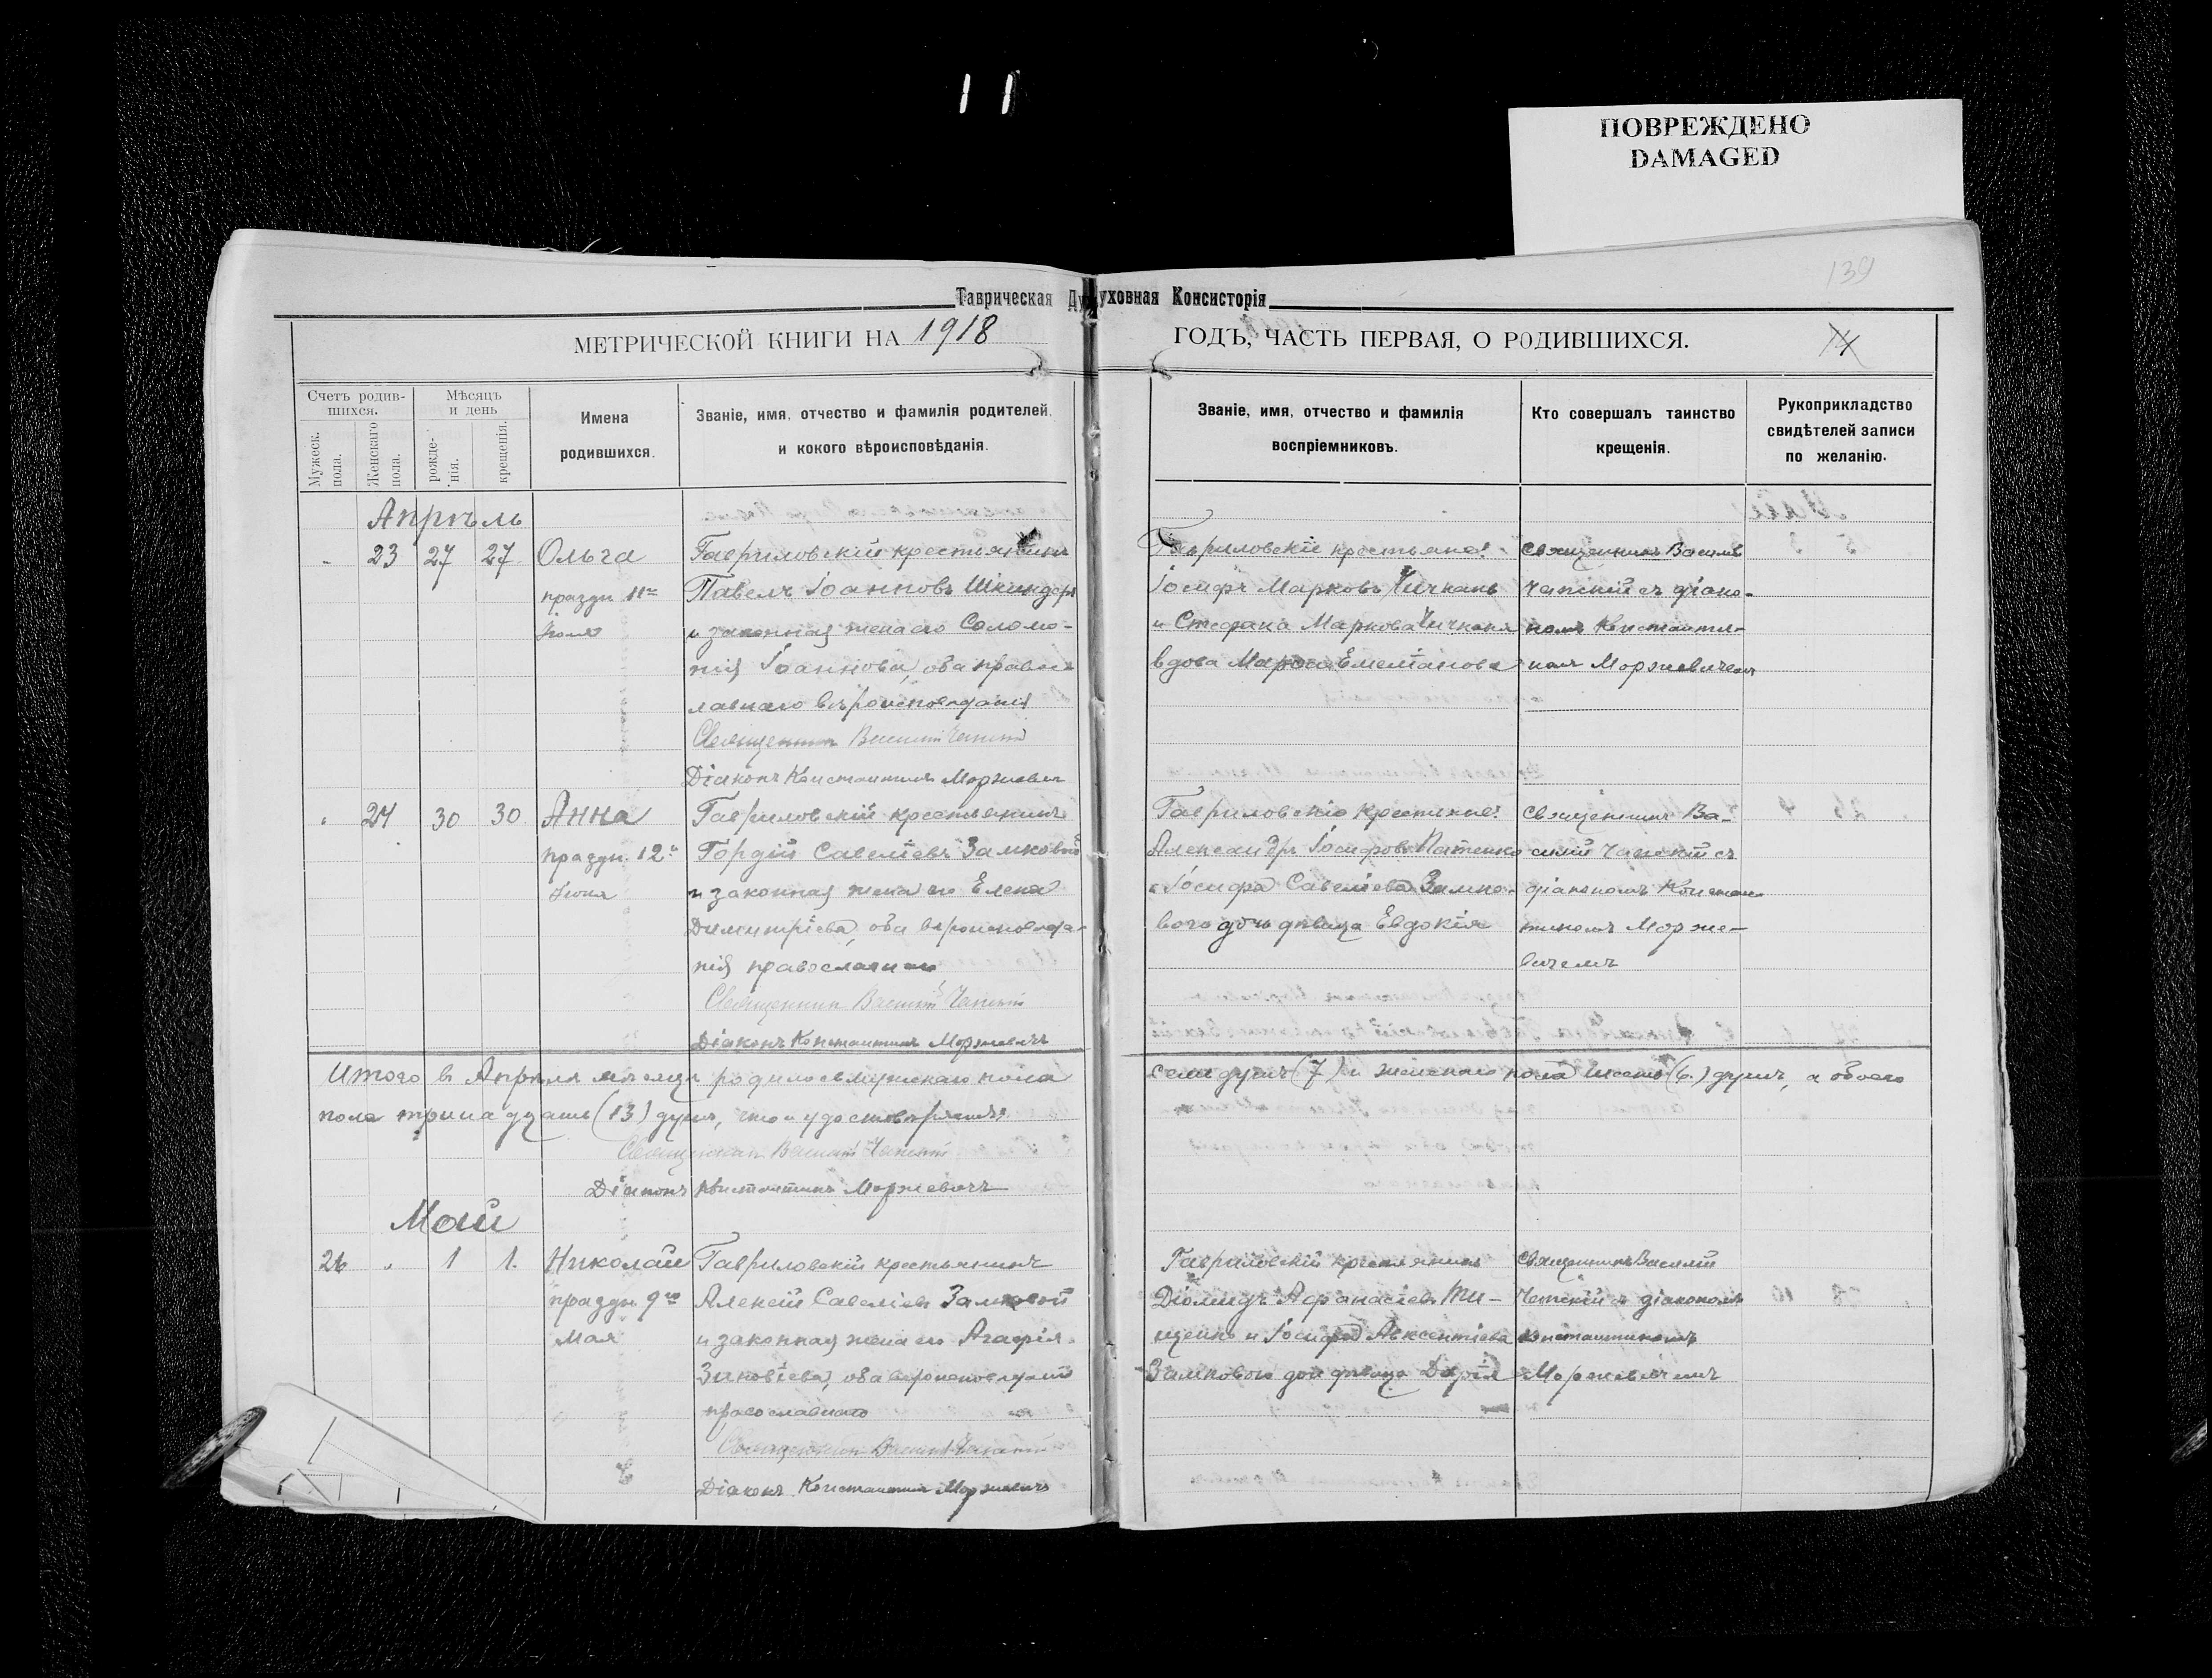 11
ПОВРЕЖДЕНО
DAMAGED
139
Таврическая Духовная Консисторія
МЕТРИЧЕСКОЙ КНИГИ НА 1918 ГОДЪ, ЧАСТЬ ПЕРВАЯ, О РОДИВШИХСЯ.
Счетъ родив-
шихся.
Мужеск.
пола.
Женскаго
пола.
Мѣсяцъ
и день
рожде-
нія.
крещенія.
Имена
родившихся.
Званіе, имя, отчество и фамилія родителей,
и кокого вѣроисповѣданія.
Званіе, имя, отчество и фамилія
воспріемниковъ.
Кто совершалъ таинство
крещенія.
Рукоприкладство
свидѣтелей записи
по желанію.
Апрѣль
23 27 27
Ольга
праздн. 11го
Гавриловскій крестьянинъ
Павелъ Іоанновъ Шкиндеръ
и законная жена его Соломо-
нія Іоаннова, оба правос-
лавнаго вѣроисповѣданія
Священник Василій Чапскій
Діаконъ Константинъ Моржевич
Гавриловскіе крестьяне:
Іосифъ Марковъ Чичканъ
и Стефана Маркова Чичкана
вдова Емеліанова
Священникъ Василій
Чапскій съ діако-
номъ Константи-
номъ Моржевичемъ
24 30 30
Анна
праздн. 12го
Іюня
Гавриловскій крестьянинъ
Гордій Савеліевъ Замковой
и законная жена его Елена
Димитріева, оба вѣроисповѣда-
нія православнаго
Священник Василій Чапскій
Діаконъ Константинъ Моржевичъ
Гавриловскіе крестьяне:
Александръ Іосифовъ Патенко
и Іосифа Савеліева Замко-
вого дочь дѣвица Евдокія
Священникъ Ва-
силій Чапскій съ
діакономъ Констан-
тиномъМорже-
вичемъ
Итого в Апрѣлѣ мѣсяцѣ родилось мужскаго пола семь душъ (7) и женскаго пола шесть (6) душъ, а обоего
пола тринадцать (13) душъ, что и удостовѣряемъ:
Священник Василій Чапскій
Діаконъ Константинъ Моржевичъ
Май
26 1 1.
Николай
праздн. 9го
Мая
Гавриловскій крестьянинъ
Алексій Савеліевъ Замковой
и законная жена его Агафія
Зиновіева, оба вѣроисповѣданія
православнаго
Священник Василій Чапскій
Діаконъ Константинъ Моржевичъ
Гавриловскій крестьянинъ
Діомидъ Афанасіевъ Ти-
щенко и Іосифа Авксентіева
Замкового дочь дѣвица Дарія
Священникъ Василій
Чапскій съ діакономъ
Константиномъ
Моржевичемъ